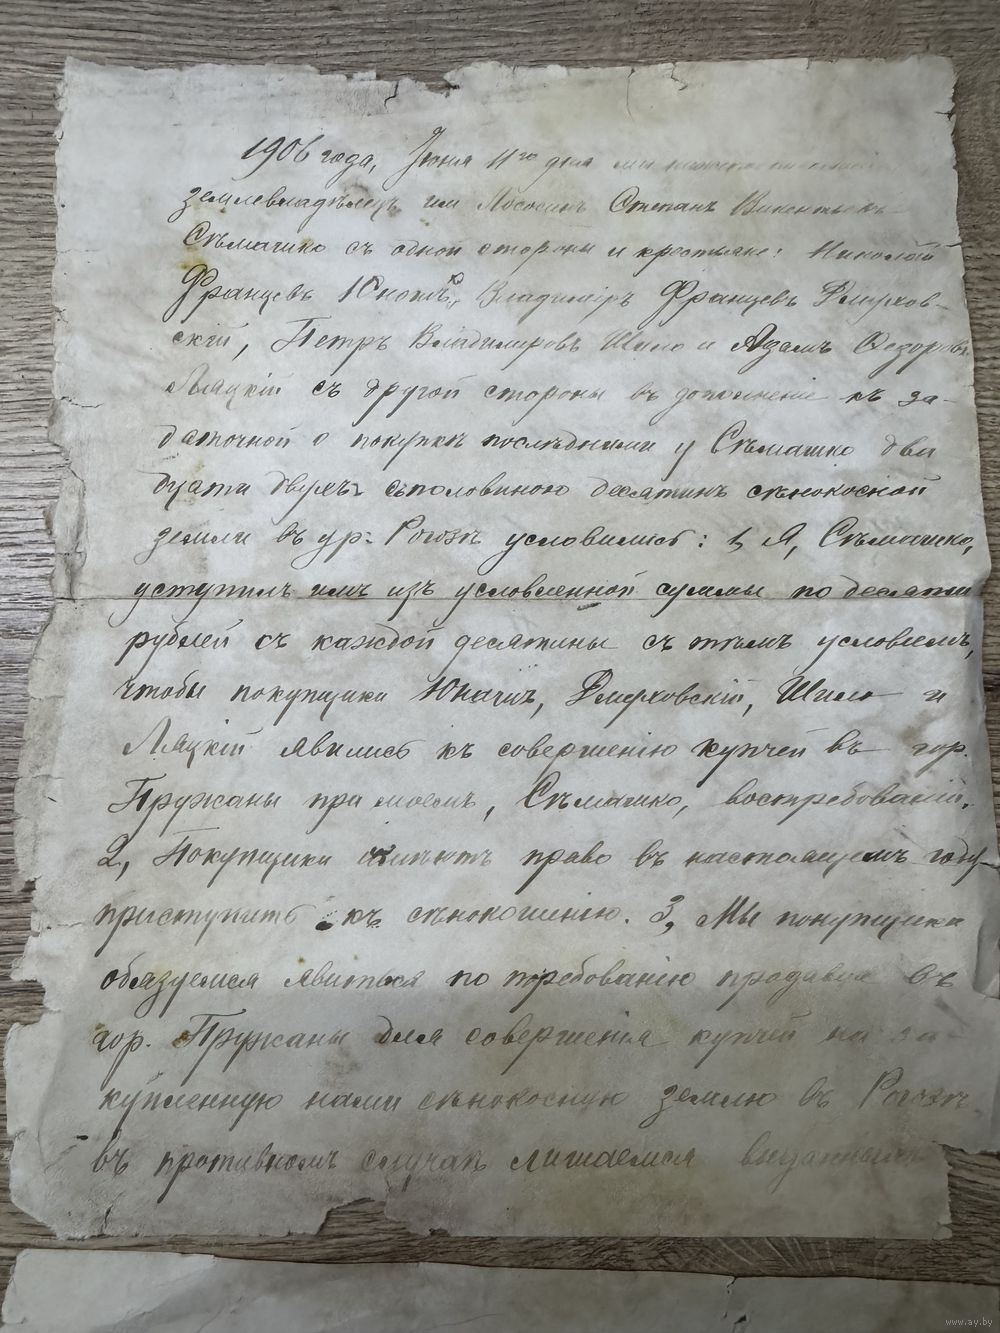 1906 года, Іюня 11го дня мы
землевладѣлецъ им. Лососинъ Степанъ Викентьевъ
Сѣмашко съ одной стороны и крестьяне: Николай
Францевъ Юнотъ, Владиміръ Францевъ
скій, Петръ Владимировъ Шило и Адамъ Ѳедоровъ
Ляцкій съ другой стороны въ дополненіе къ за-
даточной о покупкѣ послѣдними у Сѣмашко два
дцати двухъ съ половиною десятинъ сѣнокосной
земли въ ур. Рогозѣ условились: 1, Я, Сѣмашко,
уступилъ имъ изъ условленной суммы по десяти
рублей съ каждой десятины съ тѣмъ условіемъ,
чтобы покупщики Шило и
Ляцкій явились къ совершенію купчей въ гор.
Пружаны при моемъ, Сѣмашко, востребованіи.
2, Покупщики имѣютъ право въ настоящемъ году
приступить къ сѣнокошенію. 3, Мы покупщики
обязуемся явиться по требованію продавца въ
гор. Пружаны для совершенія купчей на за-
купленную нами сѣнокосную землю въ Рогозѣ
въ противномъ случаѣ лишаемся выданныхъ
www.ay.by